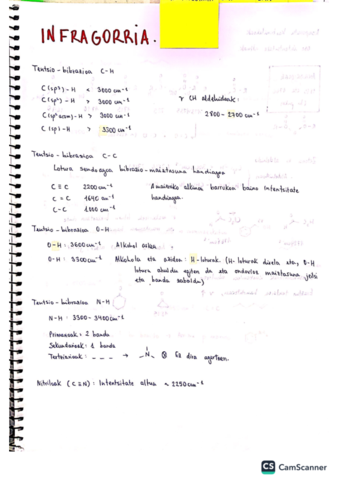 INFRAGORRIA.
Tentsio-bibrazioa C-H
C(sp³)-H < 3000 cm⁻¹
C(sp²)-H > 3000 cm⁻¹
-H > 3000 cm⁻¹
C(sp)-H > 3300 cm⁻¹
CH aldehidoak:
2800-2700 cm⁻¹
Tentsio-bibrazioa C-C
Lotura sendoagoa bibrazio-maiztasuna handiagoa
C≡C 2200 cm⁻¹
C=C 1640 cm⁻¹
C-C
Amaierako alkinoa barrukoa baino intentsitate
handiagoa.
Tentsio-bibrazioa O-H
O-H: 3600 cm⁻¹ Alkohol askea
O-H: 3300 cm⁻¹ Alkohola eta azidoa: H-loturak (H-loturak direla eta, O-H
lotura ahuldu egiten da eta ondorioz maiztasuna jetsi
eta banda zabaldu)
Tentsio-bibrazioa N-H
N-H: 3300-3400 cm⁻¹
Primarioak: 2 banda
Sekundarioak: 1 banda
Tertziarioak: - - - → -N- Ez dira agertzen.
Nitriloak (C≡N): Intentsitate altua ~ 2250 cm⁻¹
CS CamScanner